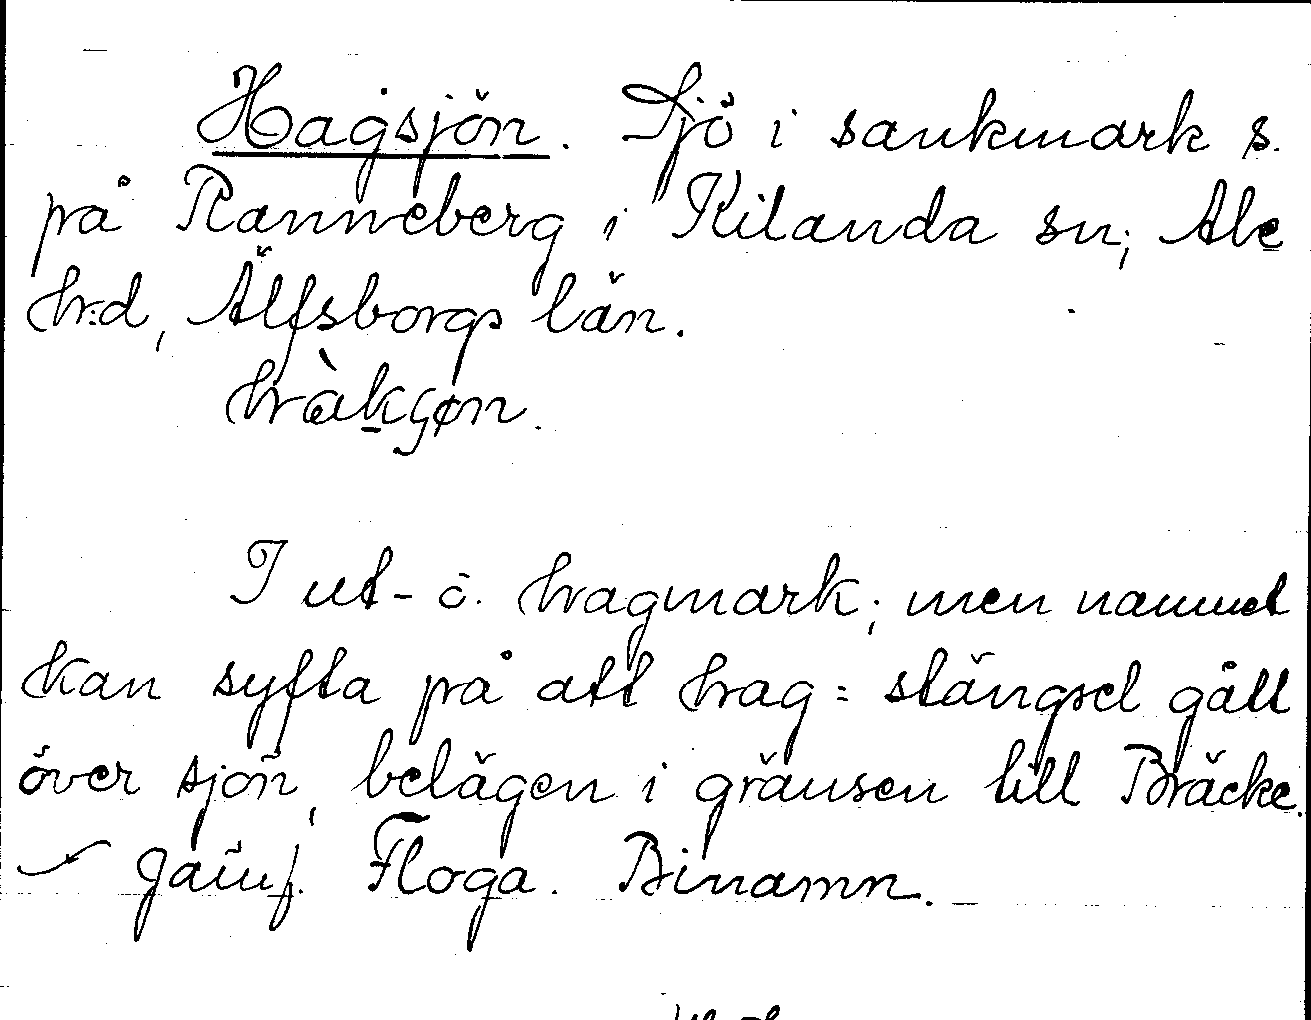 Hagsjön. Sjö i sankmark s.
på Ranneberg i Kilanda sn, Ale
h:d, Älfsborgs län.
hàkʂøn.
I ut- o. hagmark; men namnet
kan syfta på att hag = stängsel gått
över sjön, belägen i gränsen till Bräcke.
Jämf. Floga. Binamn.